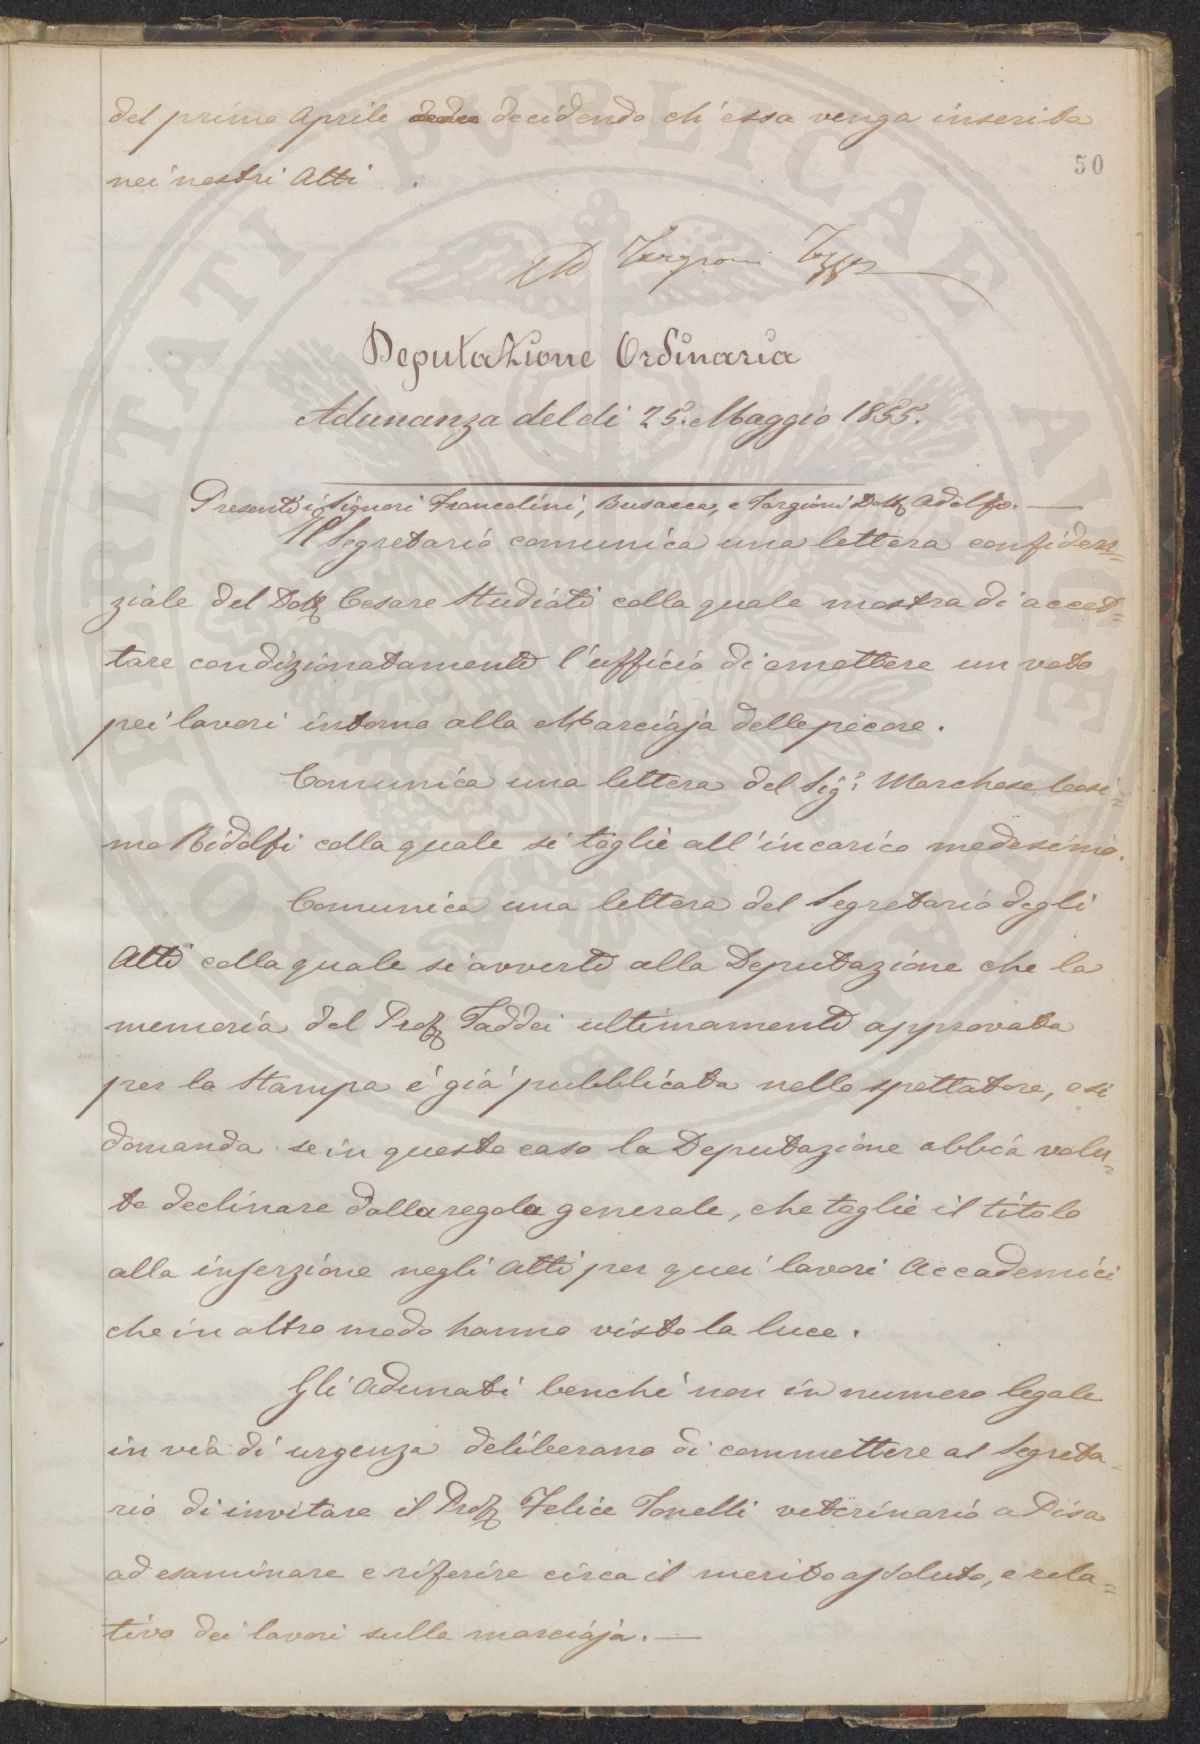 del primo Aprile dede decidendo ch'essa venga inserita
50
nei nostri Atti
AD Targioni Tozzetti
Deputazione Ordinaria
Adunanza del dì 25. Maggio 1855.
Presenti i Signori Francolini, Busacca, e Targioni Dott Adolfo.—
Il Segretario comunica una lettera confiden=
ziale del Dott Cesare Studiati colla quale mostra di accet=
tare condizionatamente l'ufficio di emettere un voto
pei lavori intorno alla Marciaja delle pecore.
Comunica una lettera del Sig.r Marchese Cosi=
mo Ridolfi colla quale si toglie all'incarico medesimo.
Comunica una lettera del Segretario degli
Atti colla quale si avverte alla Deputazione che la
memoria del Prof Taddei ultimamente approvata
per la stampa è già pubblicata nello spettatore, e si
domanda se in questo caso la Deputazione abbia volu=
to declinare dalla regola generale, che toglie il titolo
alla inserzione negli Atti per quei lavori Accademici
che in altro modo hanno visto la luce.
Gli Adunati benchè non in numero legale
in via di urgenza deliberano di commettere al Segreta=
rio di invitare il Prof Felice Tonelli veterinario a Pisa
ad esaminare e riferire circa il merito assoluto, e rela=
tivo dei lavori sulla marciaja.—
PROSPERITATI PUBLICAE AUGENDAE